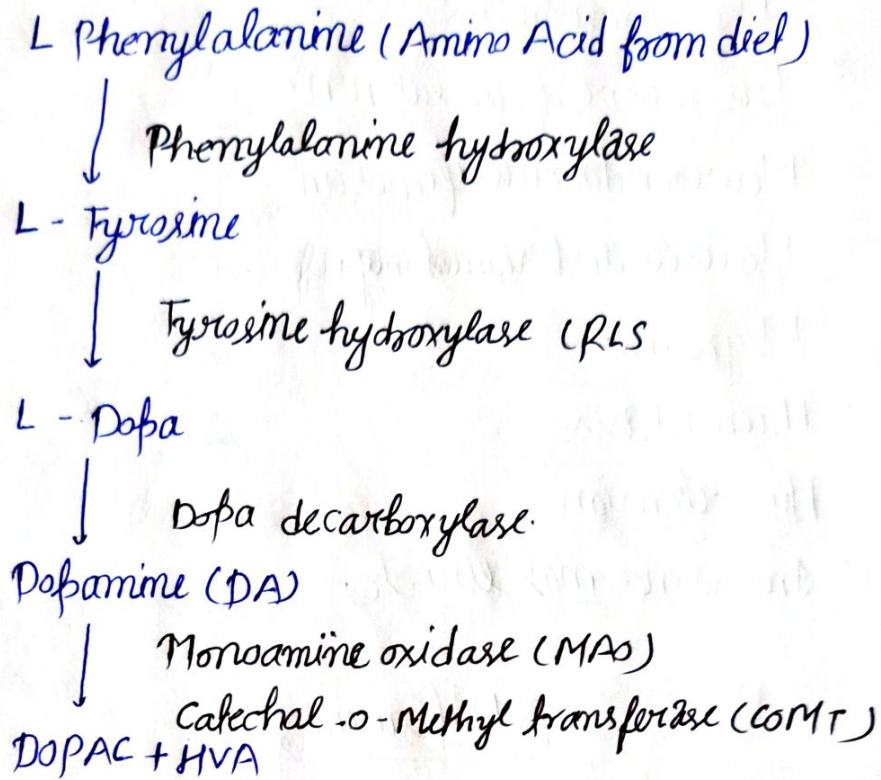 L Phenylalanine (Amino Acid from diet)
Phenylalanine hydroxylase
L - Tyrosine
Tyrosine hydroxylase (RLS
L - Dopa
Dopa decarboxylase.
Dopamine (DA)
Monoamine oxidase (MAO)
Catechal -O- Methyl transferase (COMT)
DOPAC + HVA